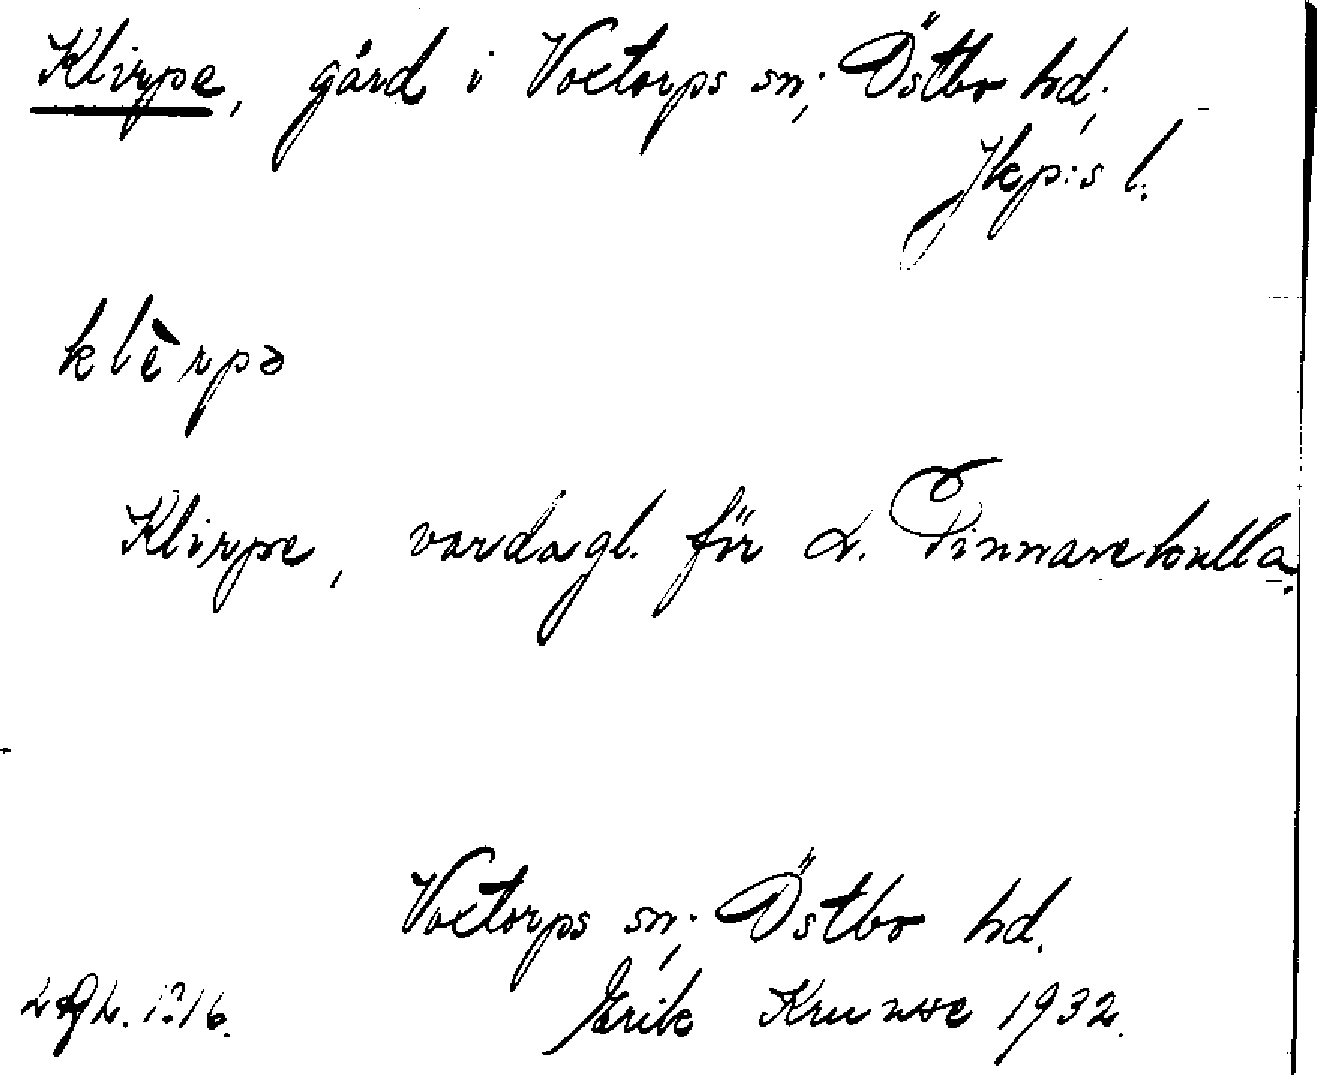 Klirpe, gård i Voxtorps sn; Östbo hd;
Jkp:s l.
klèrpə
Klirpe, vardagl. för L. Finnarehulla.
Voxtorps sn; Östbo hd.
Erik Kruuse 1932.